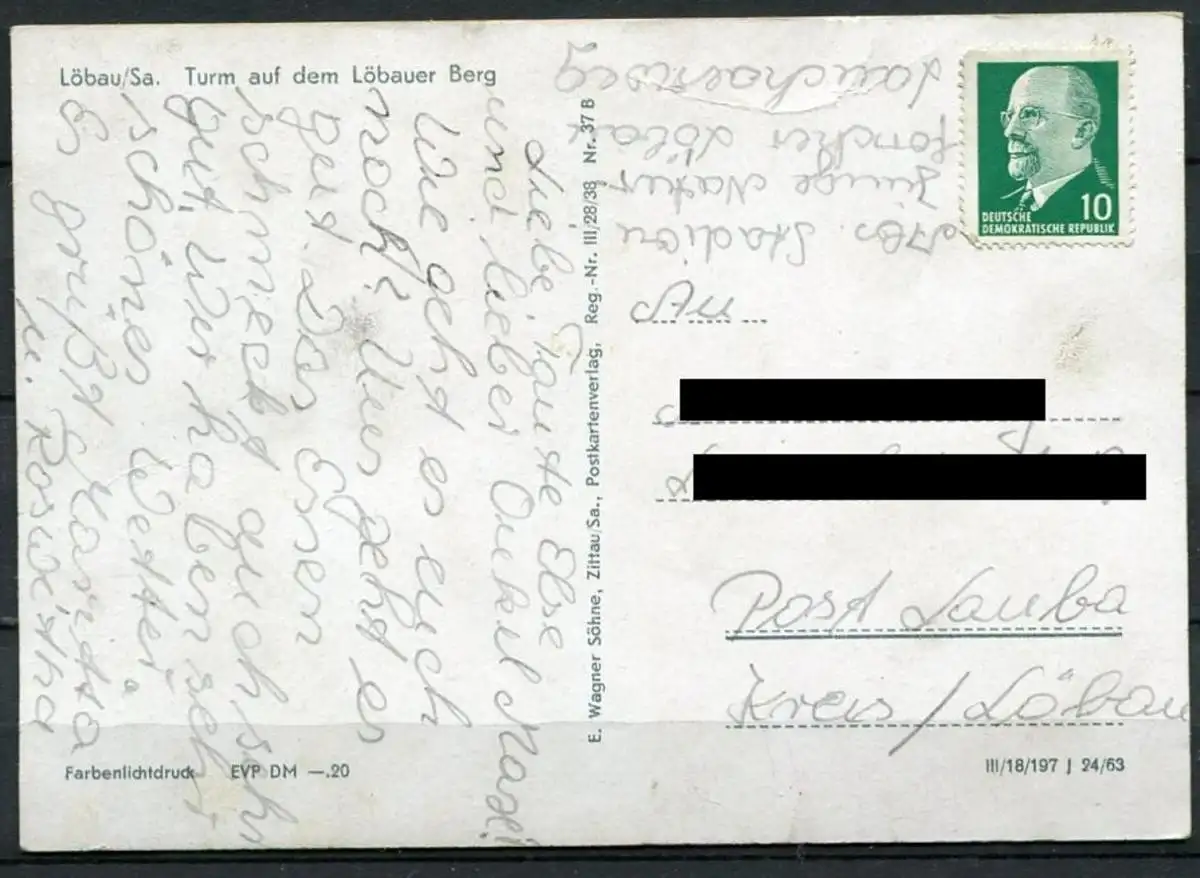 Löbau/Sa. Turm auf dem Löbauer Berg
Liebe Tante Else
und lieber Onkel Maxe!
Wie geht es euch
noch? Uns geht es
gut. Das Essen
schmeckt auch sehr
gut. Wir haben sehr
schönes Wetter.
Es grüßt Marita
u. Roswitha
Farbenlichtdruck EVP DM —.20
E. Wagner Söhne, Zittau/Sa., Postkartenverlag, Reg.-Nr. III/28/38 Nr. 37 B
Abs. Station
Junge Natur
forscher Löbau
DEUTSCHE
DEMOKRATISCHE REPUBLIK
10
An
Post Lauba
Kreis/Löbau
III/18/197 J 24/63